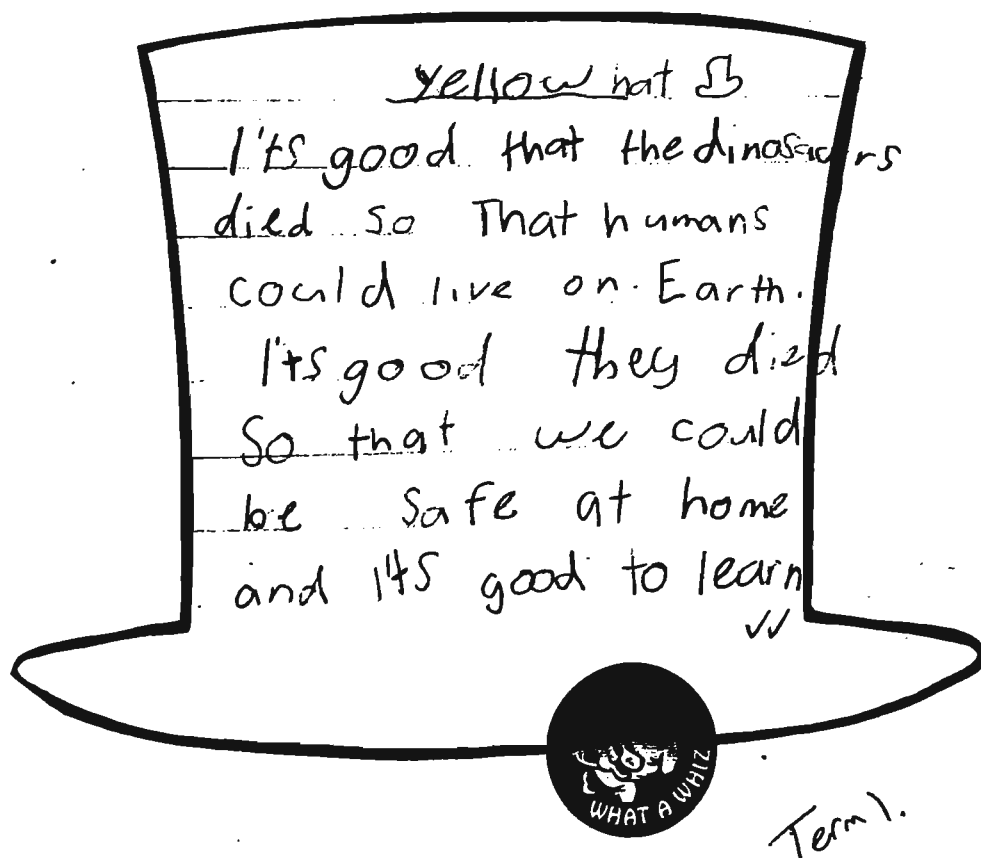 yellow hat
I'ts good that the dinosauers
died so That humans
could live on Earth.
I'ts good they died
So that we could
be safe at home
and I'ts good to learn
WHAT A WHIZ
Term 1.